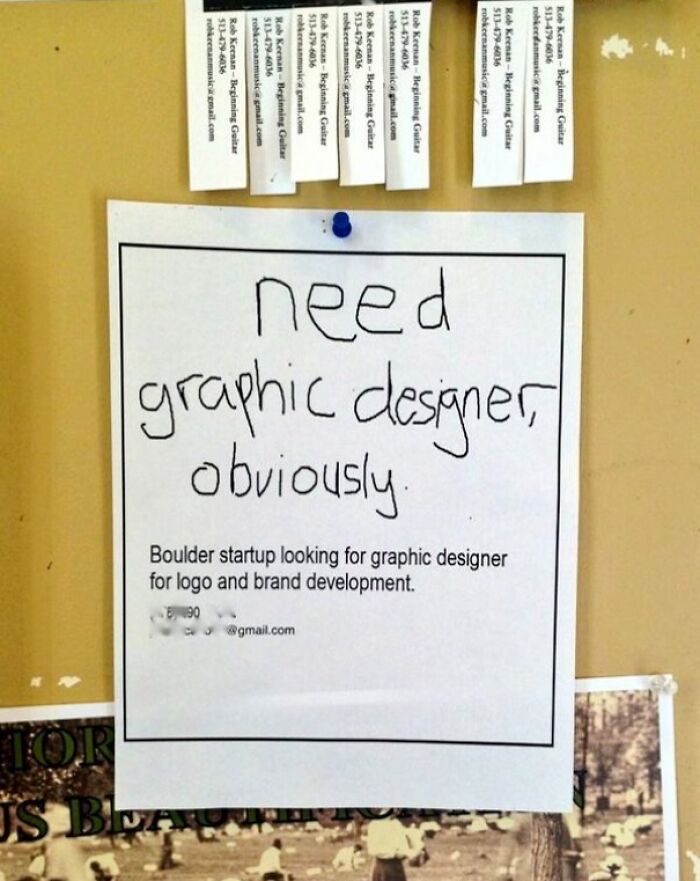 Rob Keenan – Beginning Guitar
513-479-6036
robkeenanmusic@gmail.com
Rob Keenan – Beginning Guitar
513-479-6036
robkeenanmusic@gmail.com
Rob Keenan – Beginning Guitar
513-479-6036
robkeenanmusic@gmail.com
Rob Keenan – Beginning Guitar
513-479-6036
robkeenanmusic@gmail.com
Rob Keenan – Beginning Guitar
513-479-6036
robkeenanmusic@gmail.com
Rob Keenan – Beginning Guitar
513-479-6036
robkeenanmusic@gmail.com
Rob Keenan – Beginning Guitar
513-479-6036
robkeenanmusic@gmail.com
need
graphic designer,
obviously.
Boulder startup looking for graphic designer
for logo and brand development.
90
@gmail.com